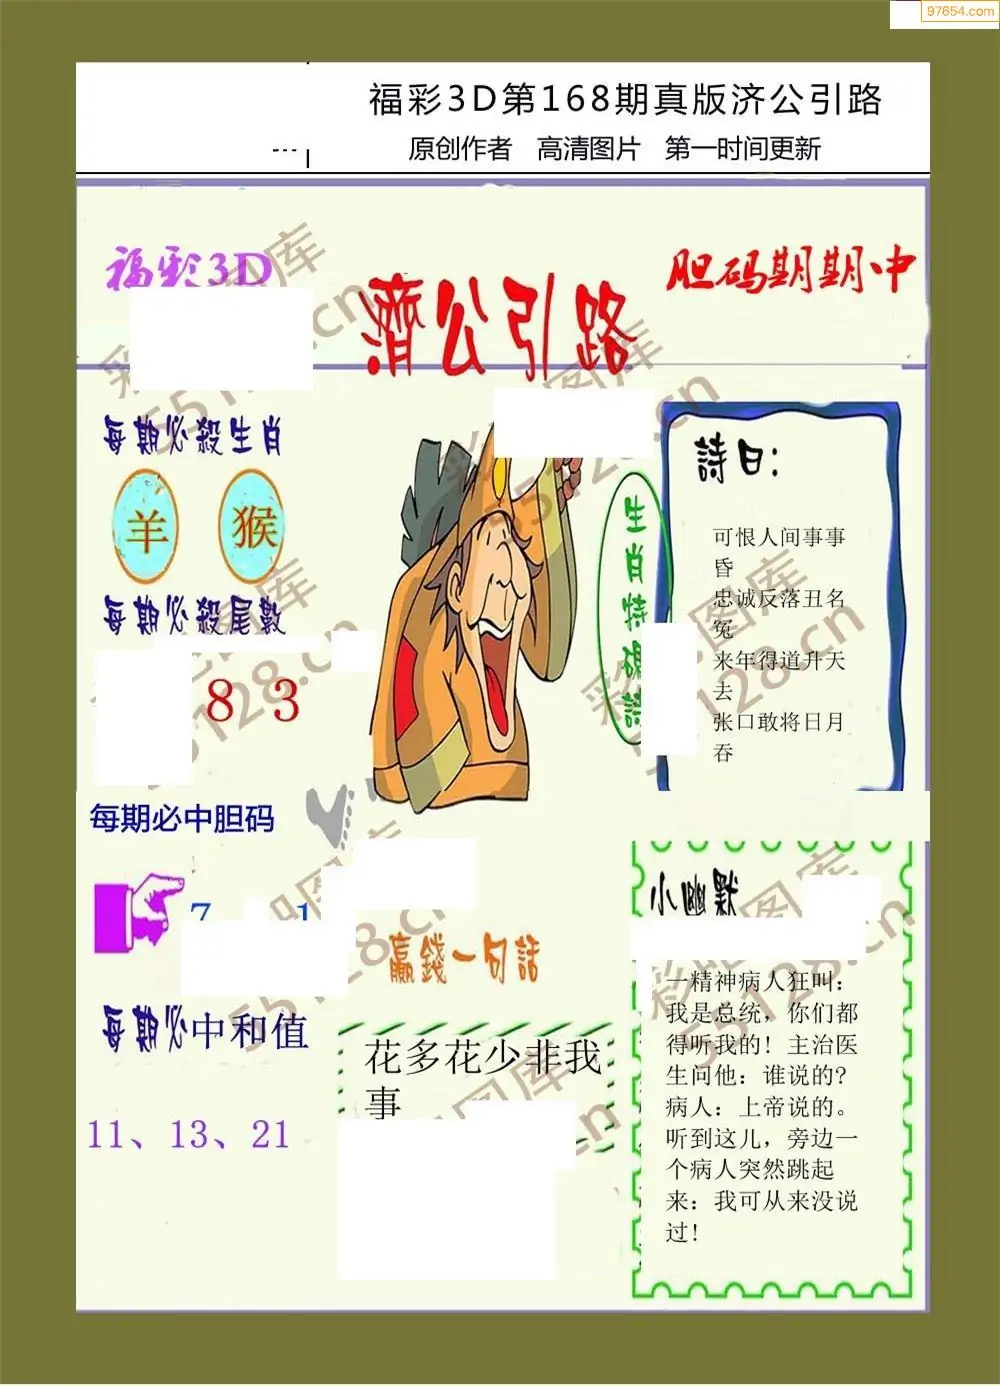 97654.com
福彩3D第168期真版济公引路
原创作者 高清图片 第一时间更新
福彩3D
濟公引路
胆码期期中
每期必殺生肖
羊 猴
每期必殺尾數
8 3
每期必中胆码
7 1
每期必中和值
11、13、21
生肖特碼詩
詩曰:
可恨人间事事
昏
忠诚反落丑名
冤
来年得道升天
去
张口敢将日月
吞
贏錢一句話
花多花少非我
事
小幽默
一精神病人狂叫:
我是总统，你们都
得听我的! 主治医
生问他: 谁说的?
病人: 上帝说的。
听到这儿，旁边一
个病人突然跳起
来: 我可从来没说
过!
55128.cn